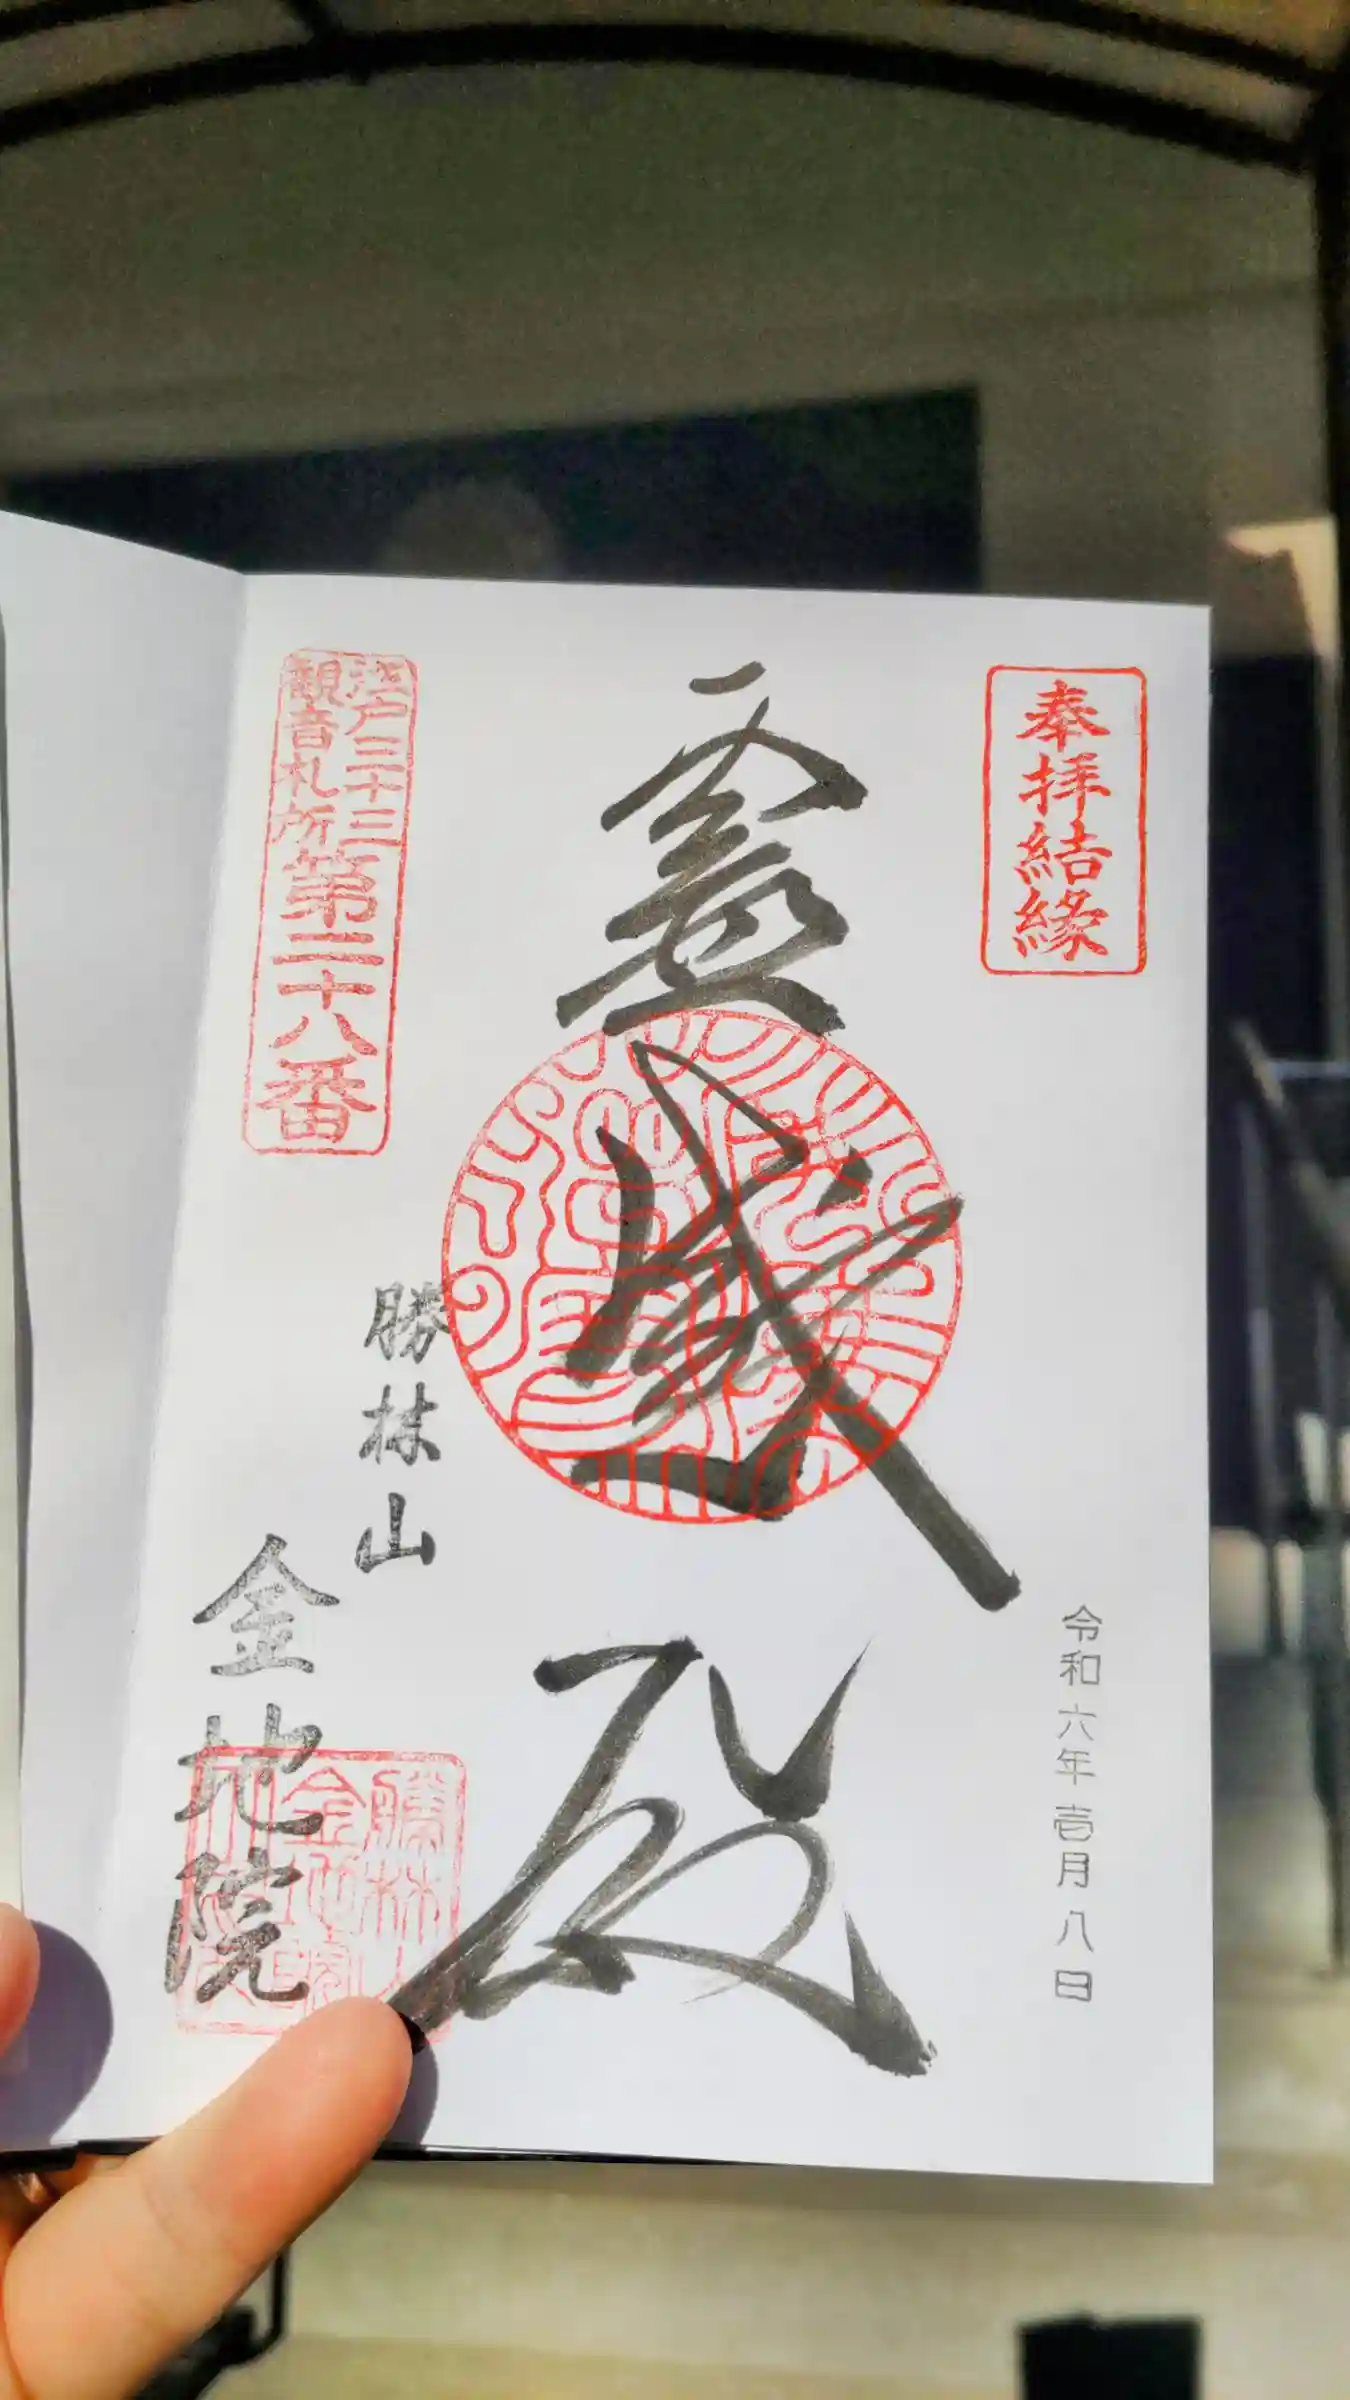 奉拝結縁
令和六年壱月八日
霊感殿
江戸三十三
観音札所
第二十八番
勝林山
金地院